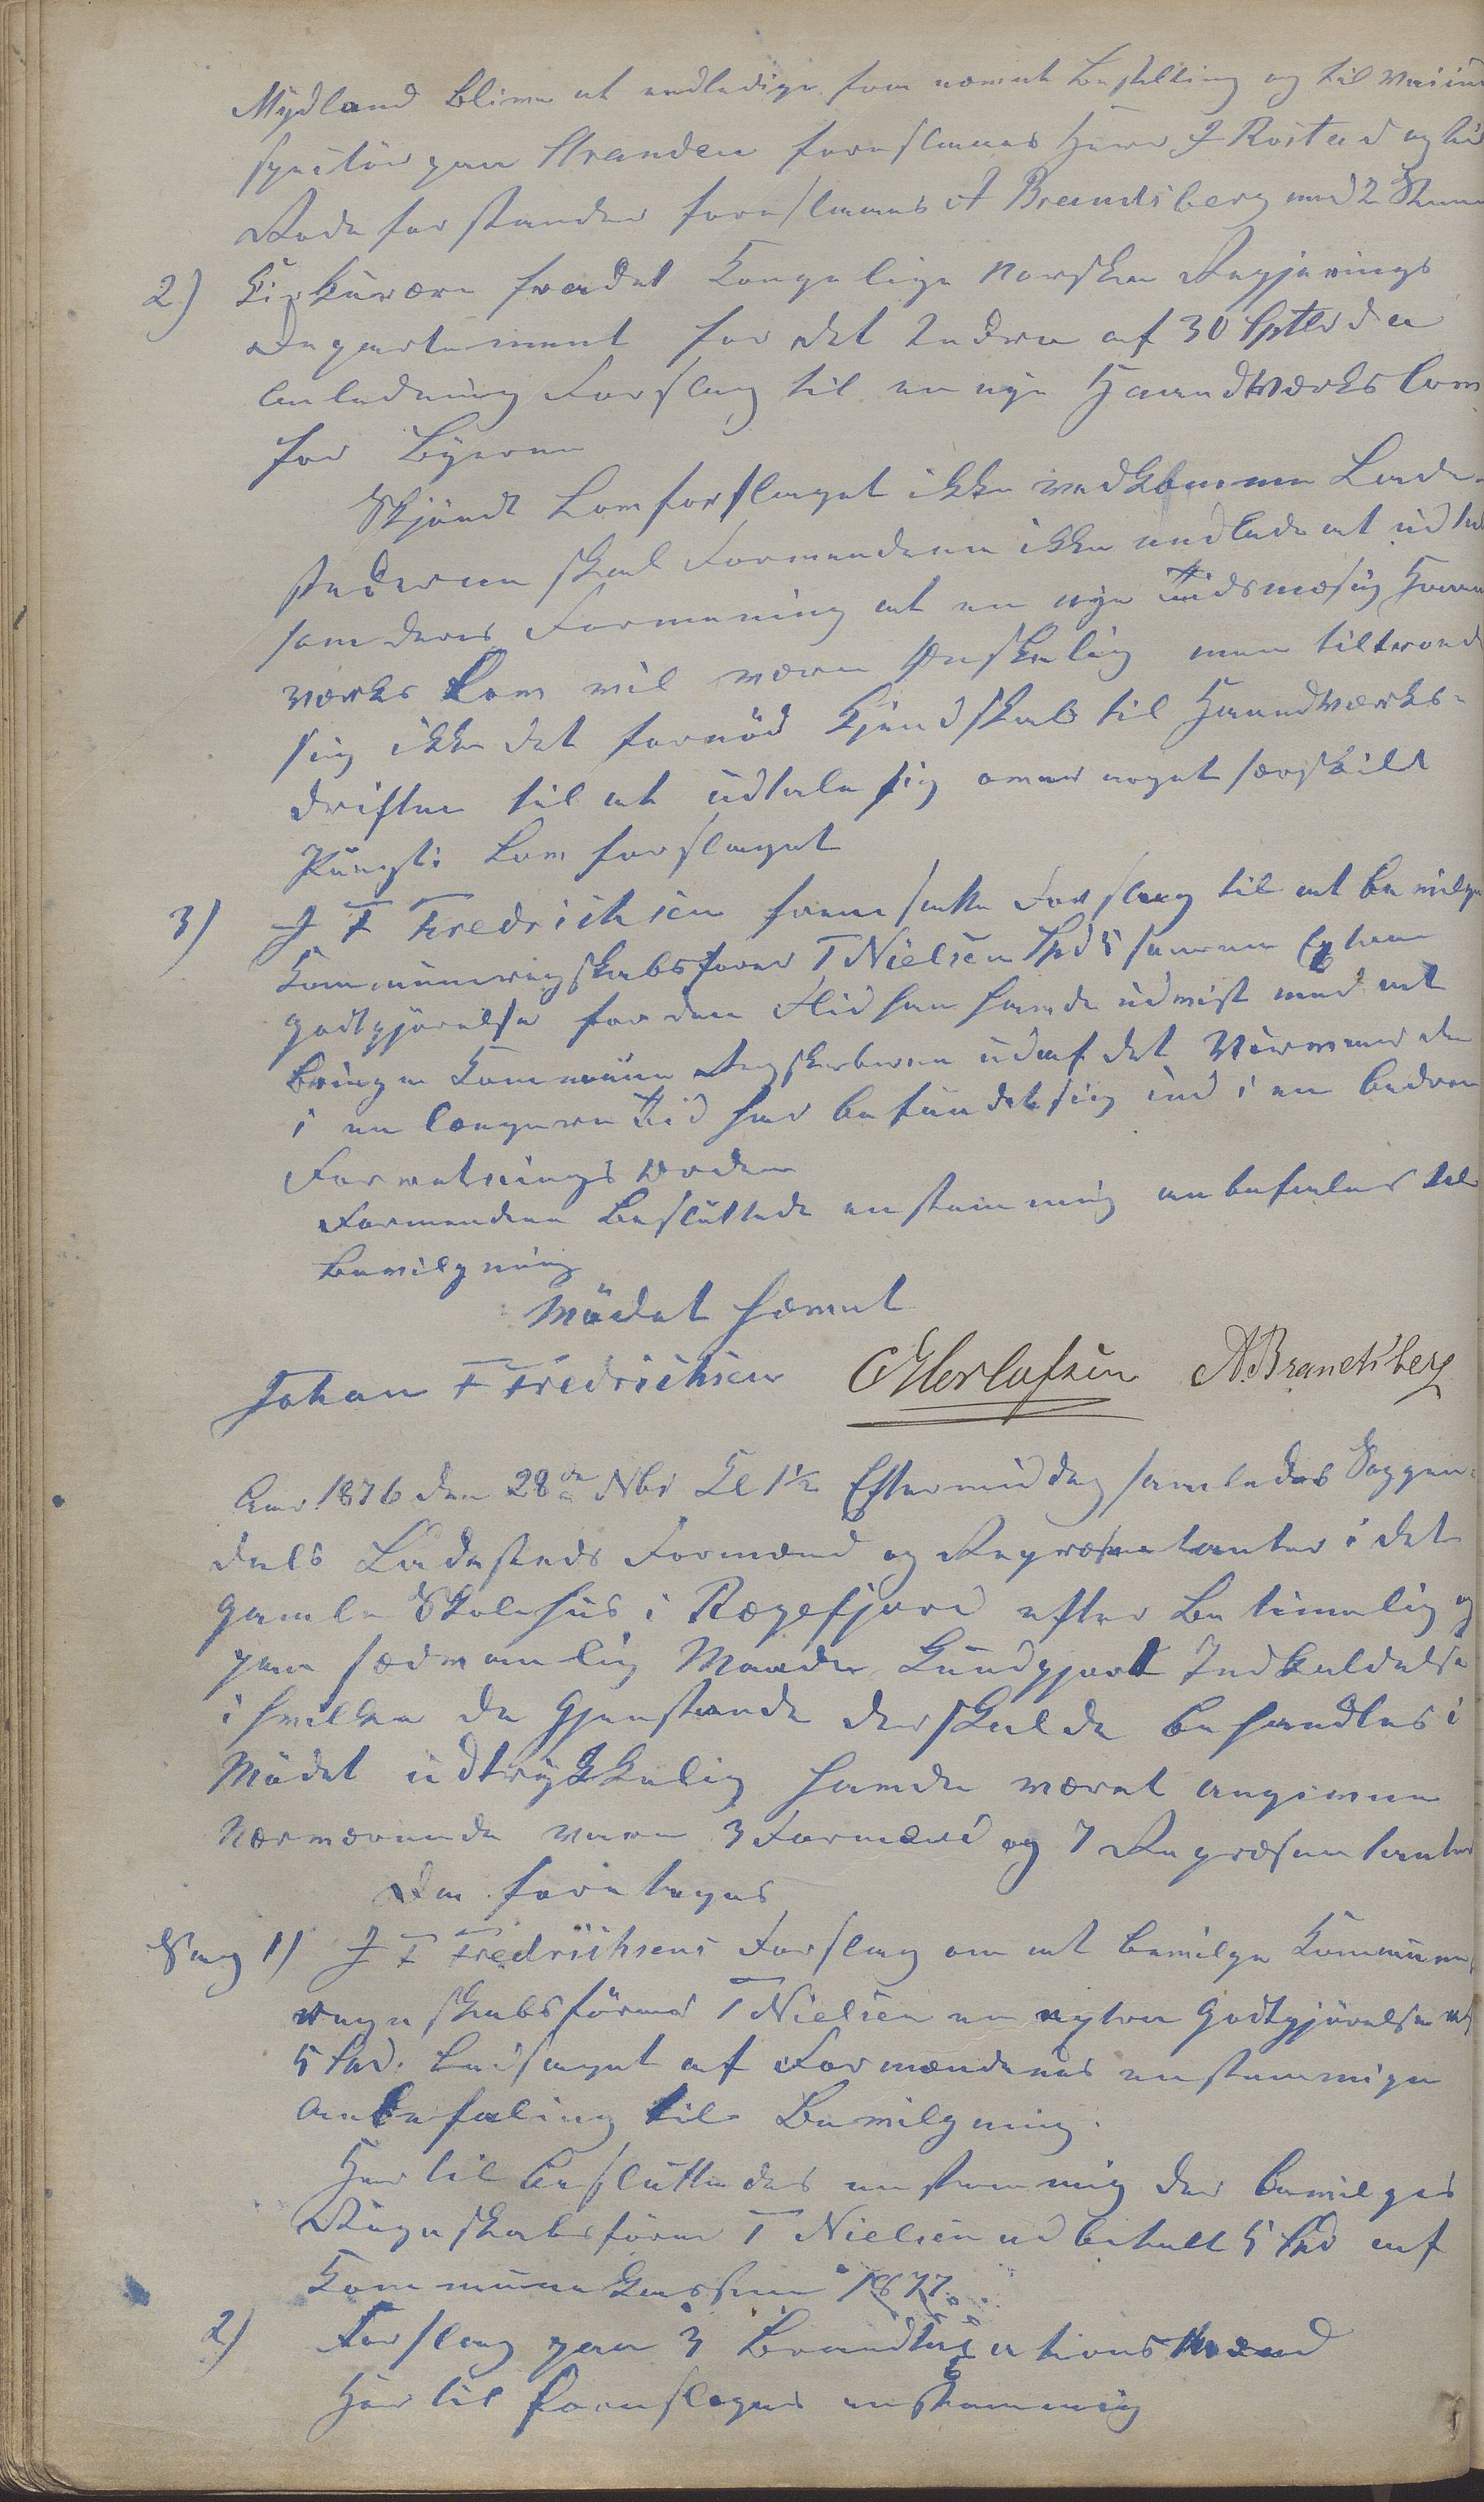 Mydland bliver at endledige fra nævnte Bestilling og til Veiin
spectør paa Stranden foreslaaes Herr J Rostad og til
Rodeforstander foreslaaes A Brandsberg med 2 Stem
2) Cirkulære fra det Kongelige Norske Regjerings
Departement for det Indre af 30 Sptbr d a
Anledning Forslag til en nye Haandværks Lov
for Byerne
Skjøndt Lovforslaget ikke vedkommer Lade-
stederne skal Formændene ikke undlade at udtal
som deres Formening at en nye Tidsmæsig Haan
værks Lov vil være ønskelig men tiltroer
sig ikke det fornød Kjendskab til Haandværks-
driften til at udtale sig over noget særskilt
Punkt i Lovforslaget
3) J F Fredrichsen fremsatte Forslag til at bevilge
Kommuneregnskabsfører T Nielsen Spd 5 som en Extra
godtgjørelse for den Flid han havde udvist med at
bringe Kommune Regskaberne ud af det Virvar de
i en længere Tid har befundet sig ind i en bedre
Forretnings Orden
Formændene Besluttede enstemmig anbefales til
Bevilgning
Mødet hævet
Johan F Fredrichsen A. Brandsberg
Aar 1876 den 28de Nbr Kl 1½ Eftermiddag samledes Soggen-
dals Ladesteds Formænd og Repræsentanter i det
gamle Skolehus i Rægefjord efter betimelig og
paa sædvanlig Maade Kundgjort Indkaldelse
i hvilken de Gjenstande der skulde behandles i
Mødet udtrykkelig havde været angivne
Nærværende vare 3 Formænd og 7 Repræsentanter
Der foretages
Sag 1) J F Fredrichsens Forslag om at bevilge Kommune
regnskabsfører T Nielsen en extra Godtgjørelse af
5 Spd. ledsaget af Formændenes enstemmige
Anbefaling til Bevilgning.
Hertil besluttedes enstemmig der bevilges
Regnskabsfører T Nielsen udbetalt 5 Spd af
Kommunekassen 1877
2) Forslag paa 3 Brandtaxationsmænd
Hertil foreslages enstemmig